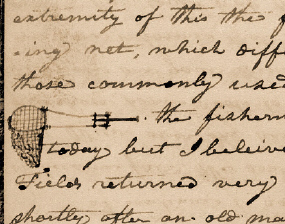 extremity of this the f
-ing net, which diff
those commonly used
. the fisherm
today but I beleive
Fields returned very
shortly after an old ma